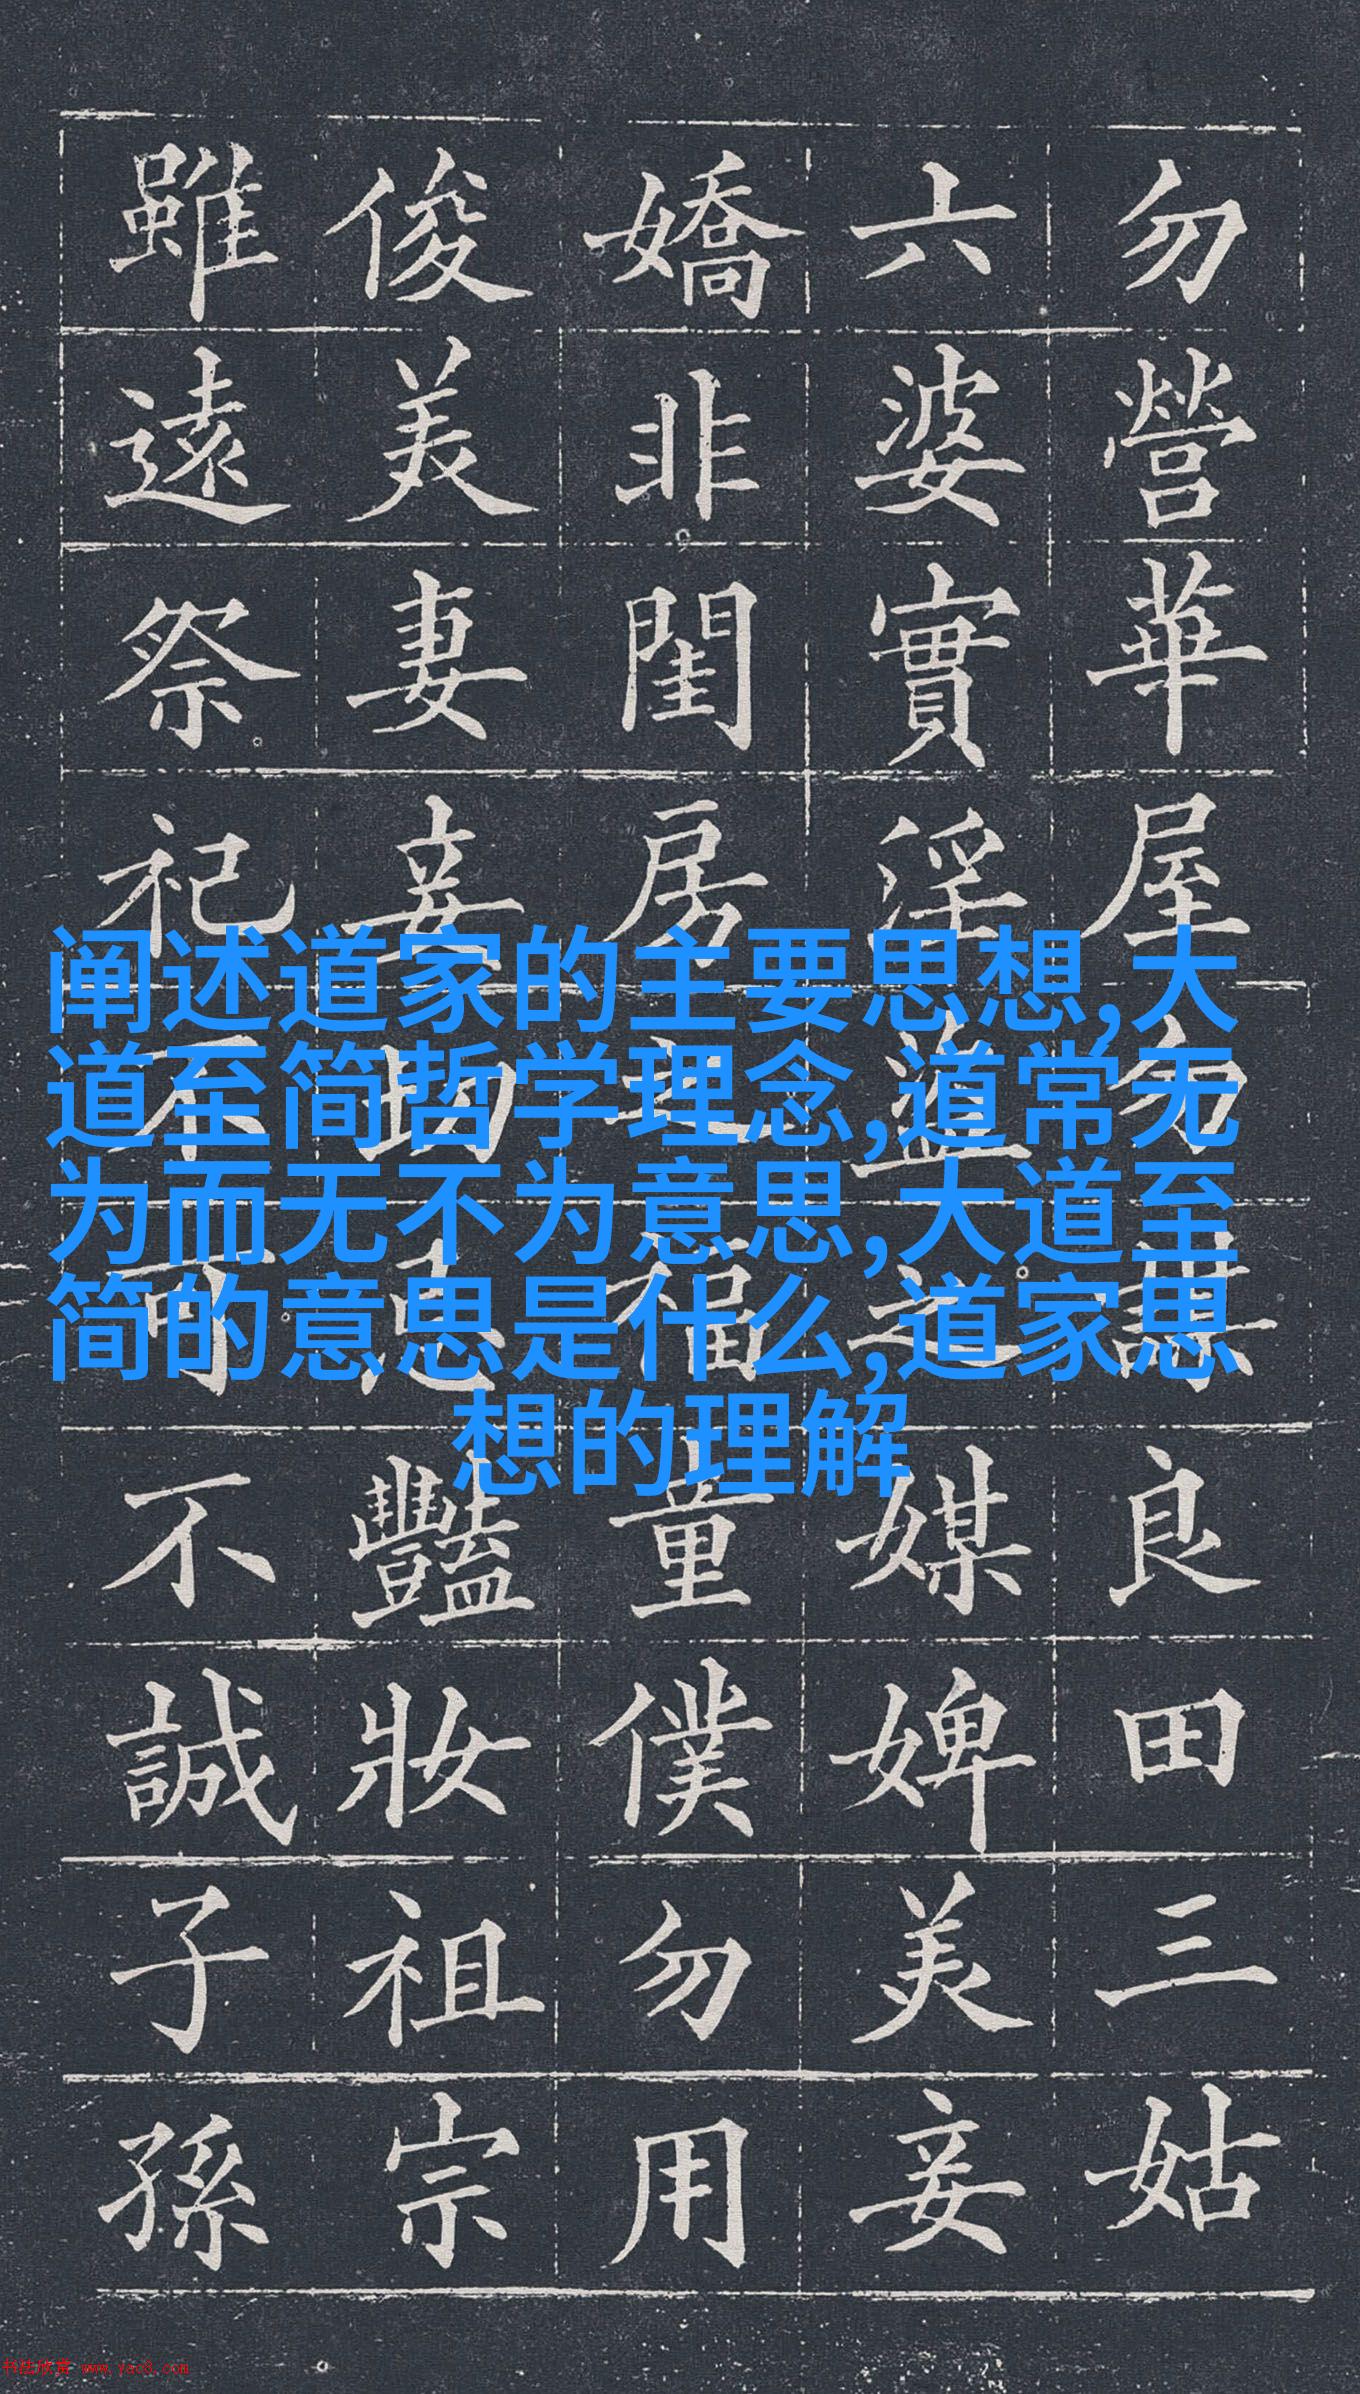 勿營華屋勿謀良田三姑
六婆實淫盜之媒婢美妾
嬌非閨房之福童僕勿用
俊美妻妾切忌豔妝祖宗
雖遠祭祀不可不誠子孫
阐述道家的主要思想,大
道至简哲学理念,道常无
为而无不为意思,大道至
简的意思是什么,道家思
想的理解
书法欣赏 www.yac8.com